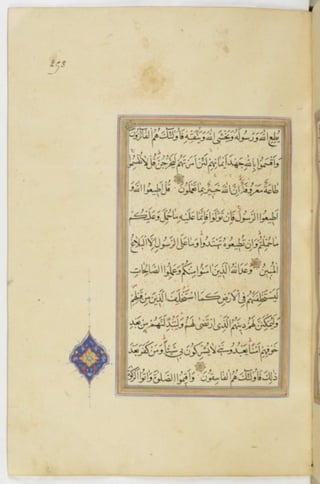 298
يطع الله ورسوله ويخشى الله ويتقه فاولئك هم الفائزون
واقسموا بالله جهد ايمانهم لئن امرتهم ليخرجن قل لا تقسموا
طاعة معروفة ان الله خبير بما تعملون قل اطيعوا الله و
اطيعوا الرسول فان تولوا فانما عليه ما حمل وعليكم
ما حملتم وان تطيعوه تهتدوا وما على الرسول الا البلاغ
المبين وعد الله الذين امنوا منكم وعملوا الصالحات
ليستخلفنهم في الارض كما استخلف الذين من قبلهم
وليمكنن لهم دينهم الذي ارتضى لهم وليبدلنهم من بعد
خوفهم امنا يعبدونني لا يشركون بي شيئا ومن كفر بعد
ذلك فاولئك هم الفاسقون واقيموا الصلوة واتوا الزكوة